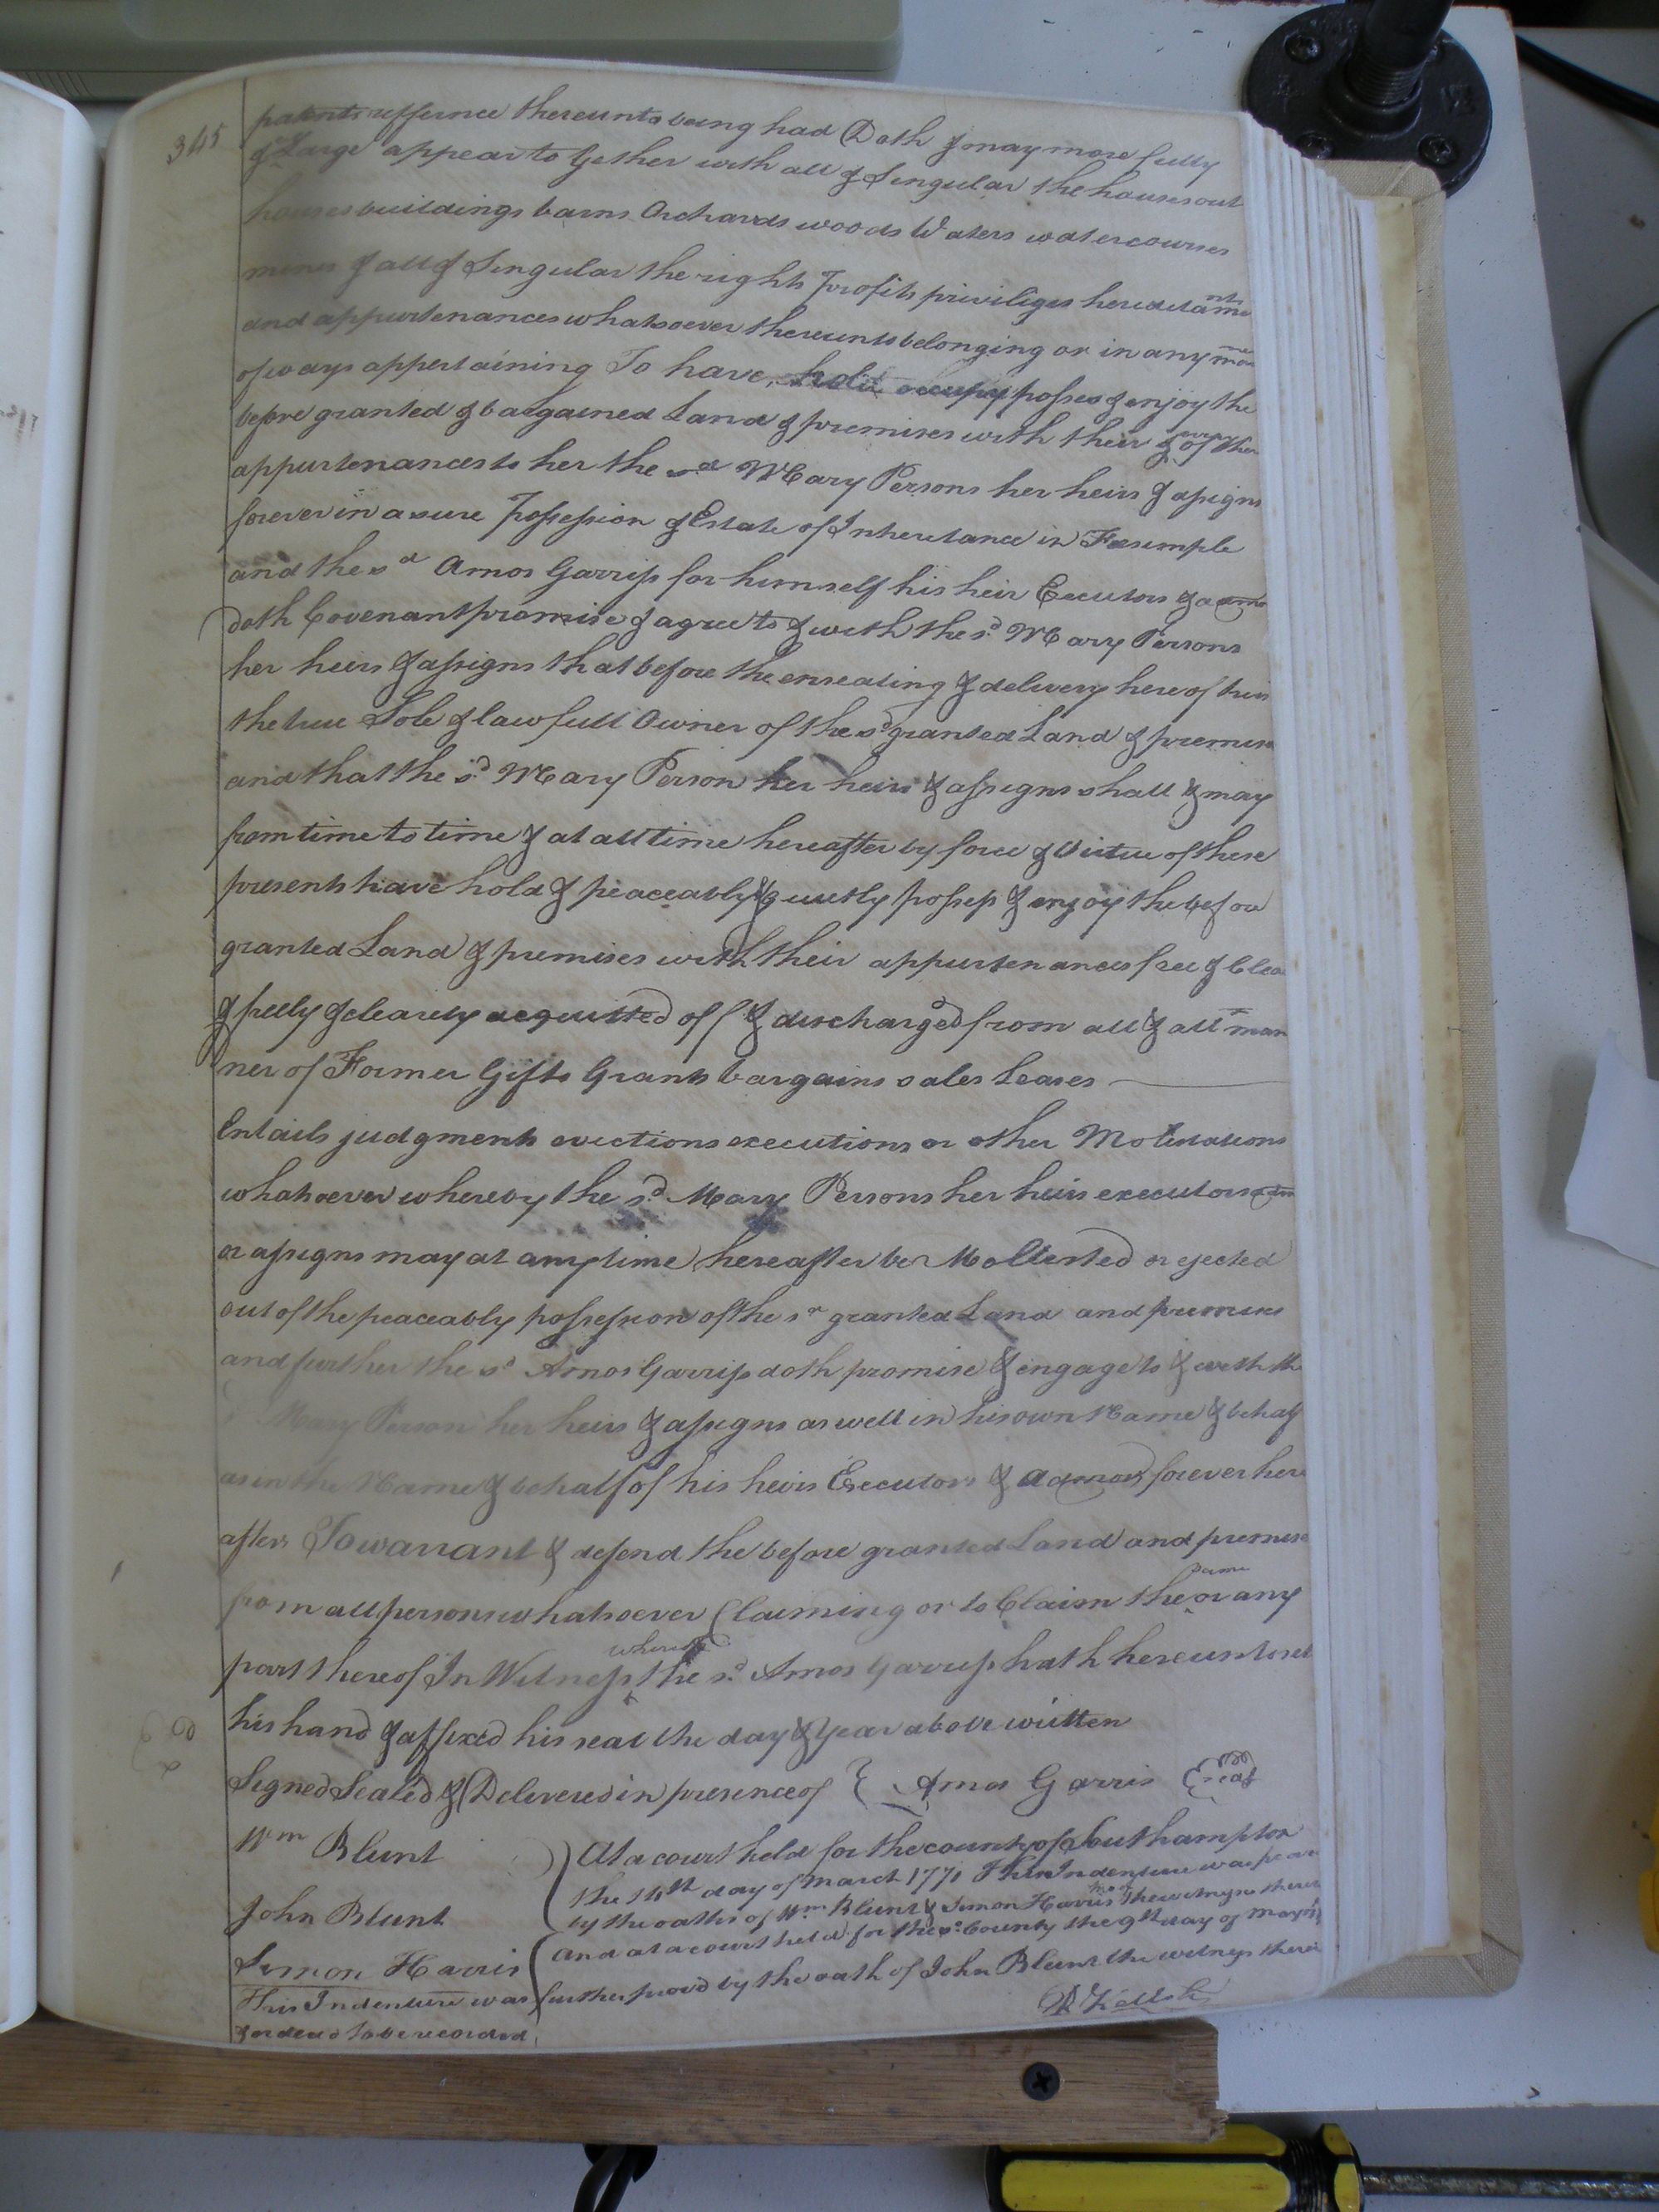 345
patents refference thereunto being had Doth & may more fully
& Large appear to Gether with all & Singular the houses out
houses buildings barns Orchards woods Waters watercourses
mines & all & Singular the rights Profits priviliges heredetame nts
and appurtenances whatsoever thereunto belonging or in any
of ways appertaining To have, hold occupy posses & enjoy the
before granted & bargained Land & premises with their &
appurtenances to her the sd Mary Persons her heirs & assigns
forever in a sure Possession & Estate of Inheretance in Feesimple
and the sd Amos Garriss for himself his heir Executors & admo
doth Covenant promise & agree to & with the sd Mary Persons
her heirs & assigns that before the ensealing & delivery hereof
the true Sole & lawfull Owner of the sd granted Land & premises
and that the sd Mary Person her heirs & assigns shall & may
from time to time & at all time hereafter by force & Virtue of these
presents have hold & peaceably & quietly possess & enjoy the before
granted Land & premises with their appurtenances free & Clear
& freely & clearely acquitted of & discharged from all & all man
ner of Former Gifts Grants bargains sales Leases
Entails judgments evictions executions or other Molistations
whatsoever whereby the sd Mary Persons her heirs executors adm
or assigns may at any time hereafter be Mollested or ejected
out of the peaceably possession of the sd granted Land and premises
and further the sd Amos Garriss doth promise & engage to & with the
sd Mary Person her heirs & assigns as well in his own Name & behalf
as in the Name & behalf of his heirs Executors & admors forever here
after To warrant & defend the before granted Land and premises
from all persons whatsoever Claiming or to Claim the same or any
part thereof In Witness whereof the sd Amos Garriss hath hereunto set
his hand & affixed his seal the day & Year above written
Signed Sealed & Delivered in presence of } Amos Garris seal
Wm Blunt
John Blunt
Simon Harris
At a court held for the county of Southampton
the 14th day of March 1771 This Indenture was
by the oaths of Wm Blunt & Simon Harris the witnesses
And at a court held for the sd County the 9th day of May
This Indenture was further prov'd by the oath of John Blunt the witness
& orderd to be recorded